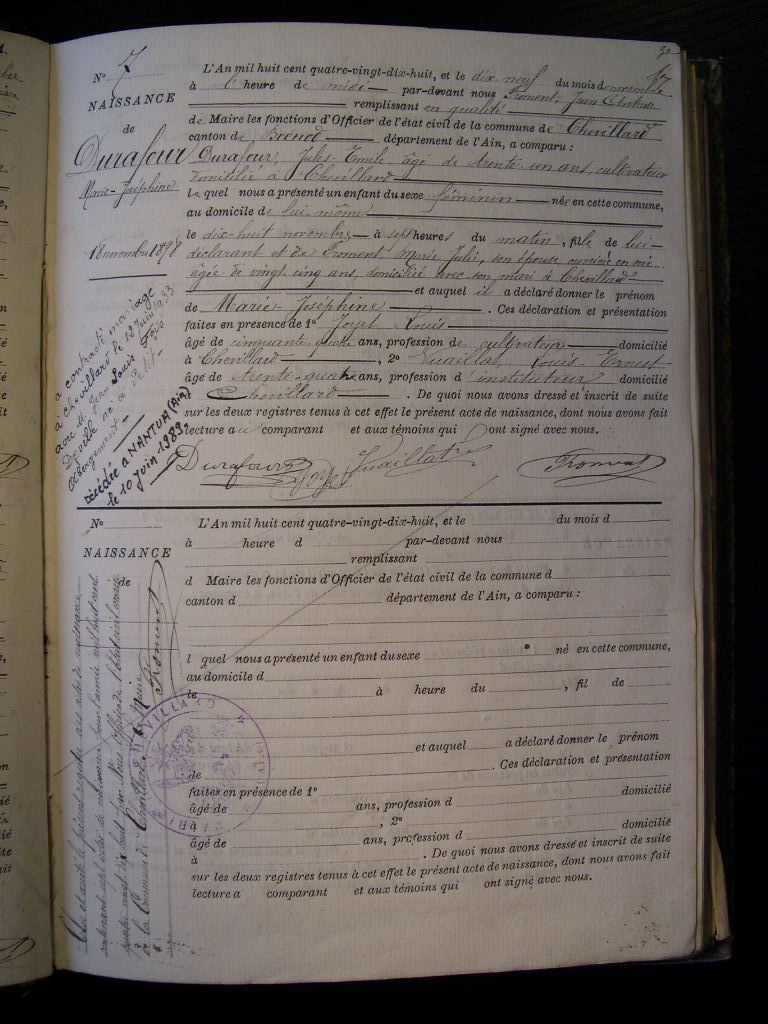 N° 7
NAISSANCE
de
Durafour
Marie-Joséphine
18 novembre 1898
L'An mil huit cent quatre-vingt-dix-huit, et le dix neuf du mois de novembre
à l' heure de midi par-devant nous Froment, Jean
remplissant en qualité
de Maire les fonctions d'Officier de l'état civil de la commune de Chevillard
canton de Brénod département de l'Ain, a comparu :
Durafour, Jules-Emile, âgé de trente un ans, cultivateur
domicilié à Chevillard
lequel nous a présenté un enfant du sexe féminin née en cette commune,
au domicile de lui même
le dix-huit novembre à sept heures du matin, fille de lui-
déclarant et de Froment, Marie Julie, son épouse ouvrière en soie
âgée de vingt cinq ans, domiciliée avec son mari à Chevillard
et auquel il a déclaré donner le prénom
de Marie-Joséphine . Ces déclaration et présentation
faites en présence de 1° Joyet, Louis
âgé de cinquante quatre ans, profession de cultivateur domicilié
à Chevillard , 2° Vuaillat, Louis-Ernest
âgé de trente-quatre ans, profession d'instituteur domicilié
Chevillard . De quoi nous avons dressé et inscrit de suite
sur les deux registres tenus à cet effet le présent acte de naissance, dont nous avons fait
lecture au comparant et aux témoins qui ont signé avec nous.
Durafour Joyet Vuaillat Froment
a contracté mariage
à Chevillard le 12 Juin 1933
avec M. Jean Louis
né à Petit-
Abergement
Décédée à NANTUA (Ain)
le 10 juin 1989
N°
NAISSANCE
de
L'An mil huit cent quatre-vingt-dix-huit, et le du mois d
à heure d par-devant nous
remplissant
d Maire les fonctions d'Officier de l'état civil de la commune d
canton d département de l'Ain, a comparu :
l quel nous a présenté un enfant du sexe né en cette commune,
au domicile d
le à heure du , fil de
et auquel a déclaré donner le prénom
de . Ces déclaration et présentation
faites en présence de 1° domicilié
âgé de ans, profession d
à , 2° domicilié
âgé de ans, profession d
à . De quoi nous avons dressé et inscrit de suite
sur les deux registres tenus à cet effet le présent acte de naissance, dont nous avons fait
lecture a comparant et aux témoins qui ont signé avec nous.
Clos et arrêté le présent registre des actes de naissance
pour l'année mil huit cent
quatre vingt dix huit par Nous Officier de l'état civil, maire
de la Commune de Chevillard
Le Maire
Froment